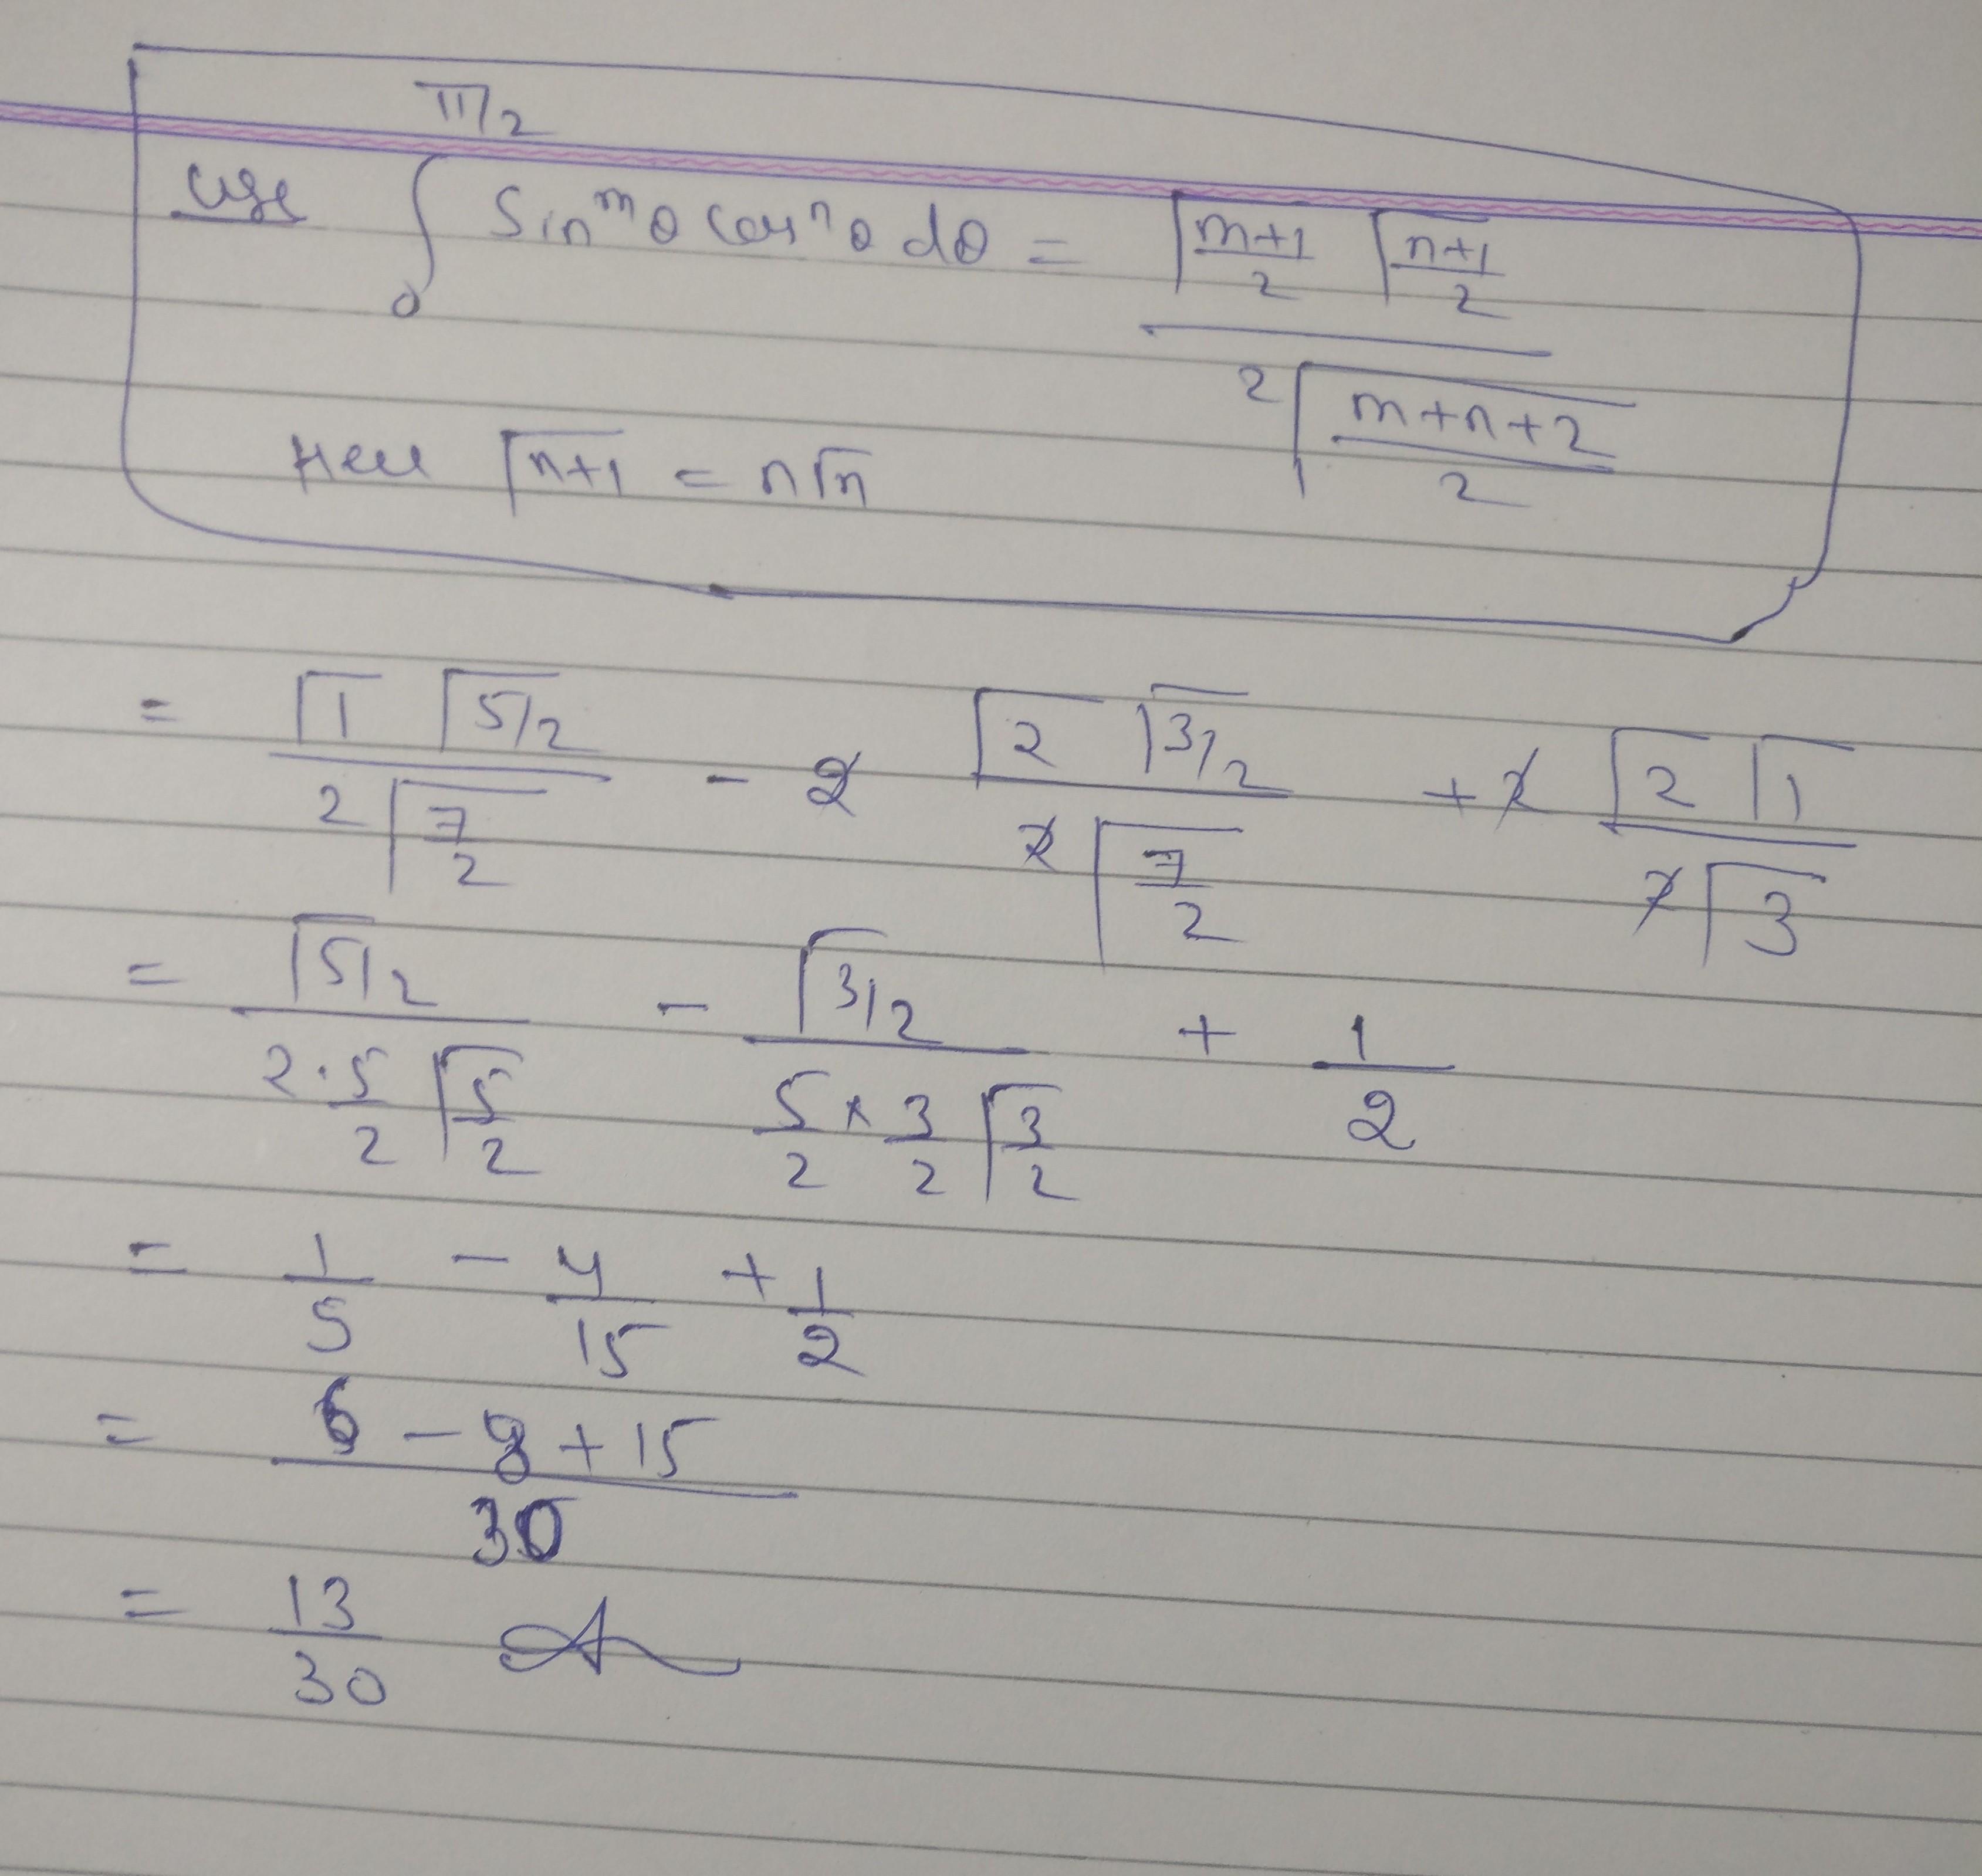 π/2
Use ∫ Sin^m θ Cos^n θ dθ = Γ(m+1)/2 Γ(n+1)/2
0
2 Γ(m+n+2)/2
Here Γn+1 = nΓn
= Γ1 Γ5/2 / 2 Γ7/2 - 2 Γ2 Γ3/2 / 2 Γ7/2 + 2 Γ2 Γ1 / 2 Γ3
= Γ5/2 / 2·5/2 Γ5/2 - Γ3/2 / 5/2 × 3/2 Γ3/2 + 1/2
= 1/5 - 4/15 + 1/2
= 6 - 8 + 15 / 30
= 13/30